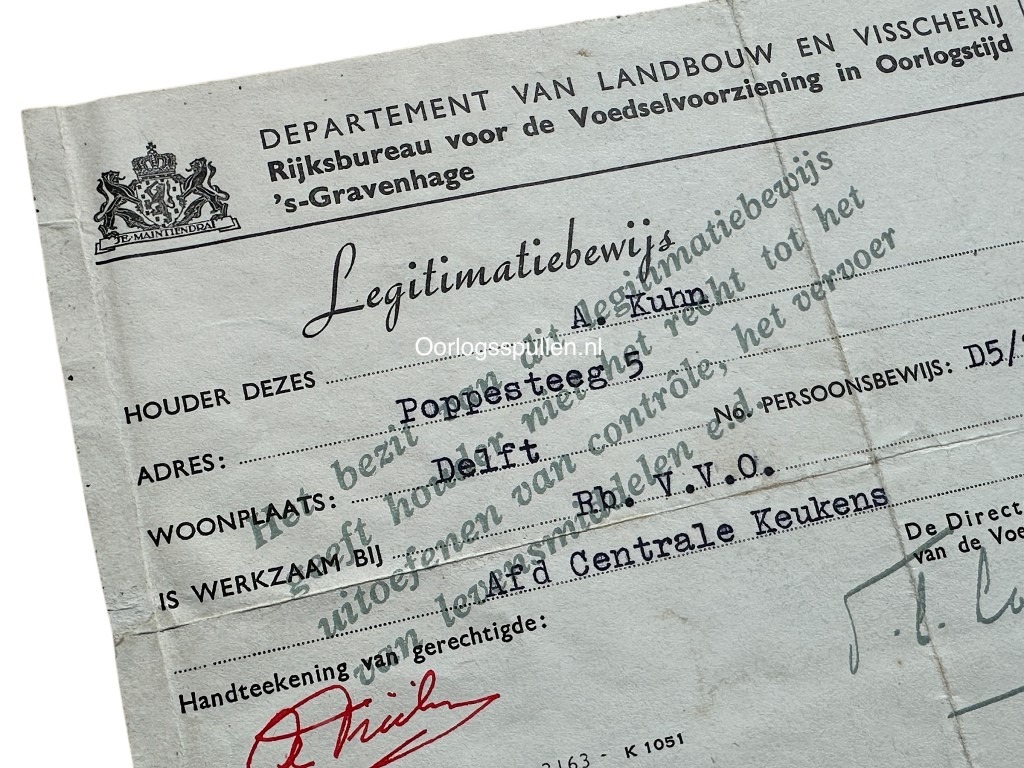 DEPARTEMENT VAN LANDBOUW EN VISSCHERIJ
Rijksbureau voor de Voedselvoorziening in Oorlogstijd
's-Gravenhage
JE·MAINTIENDRAI
Legitimatiebewijs
HOUDER DEZES A. Kuhn
Oorlogsspullen.nl
ADRES: Poppesteeg 5
WOONPLAATS: Delft No. PERSOONSBEWIJS: D5/
IS WERKZAAM BIJ Rb. V.V.O.
Afd Centrale Keukens
Het bezit van dit legitimatiebewijs
geeft houder niet het recht tot het
uitoefenen van contrôle, het vervoer
van levensmiddelen e.d.
De Direct
van de Voe
Handteekening van gerechtigde:
2163 - K 1051